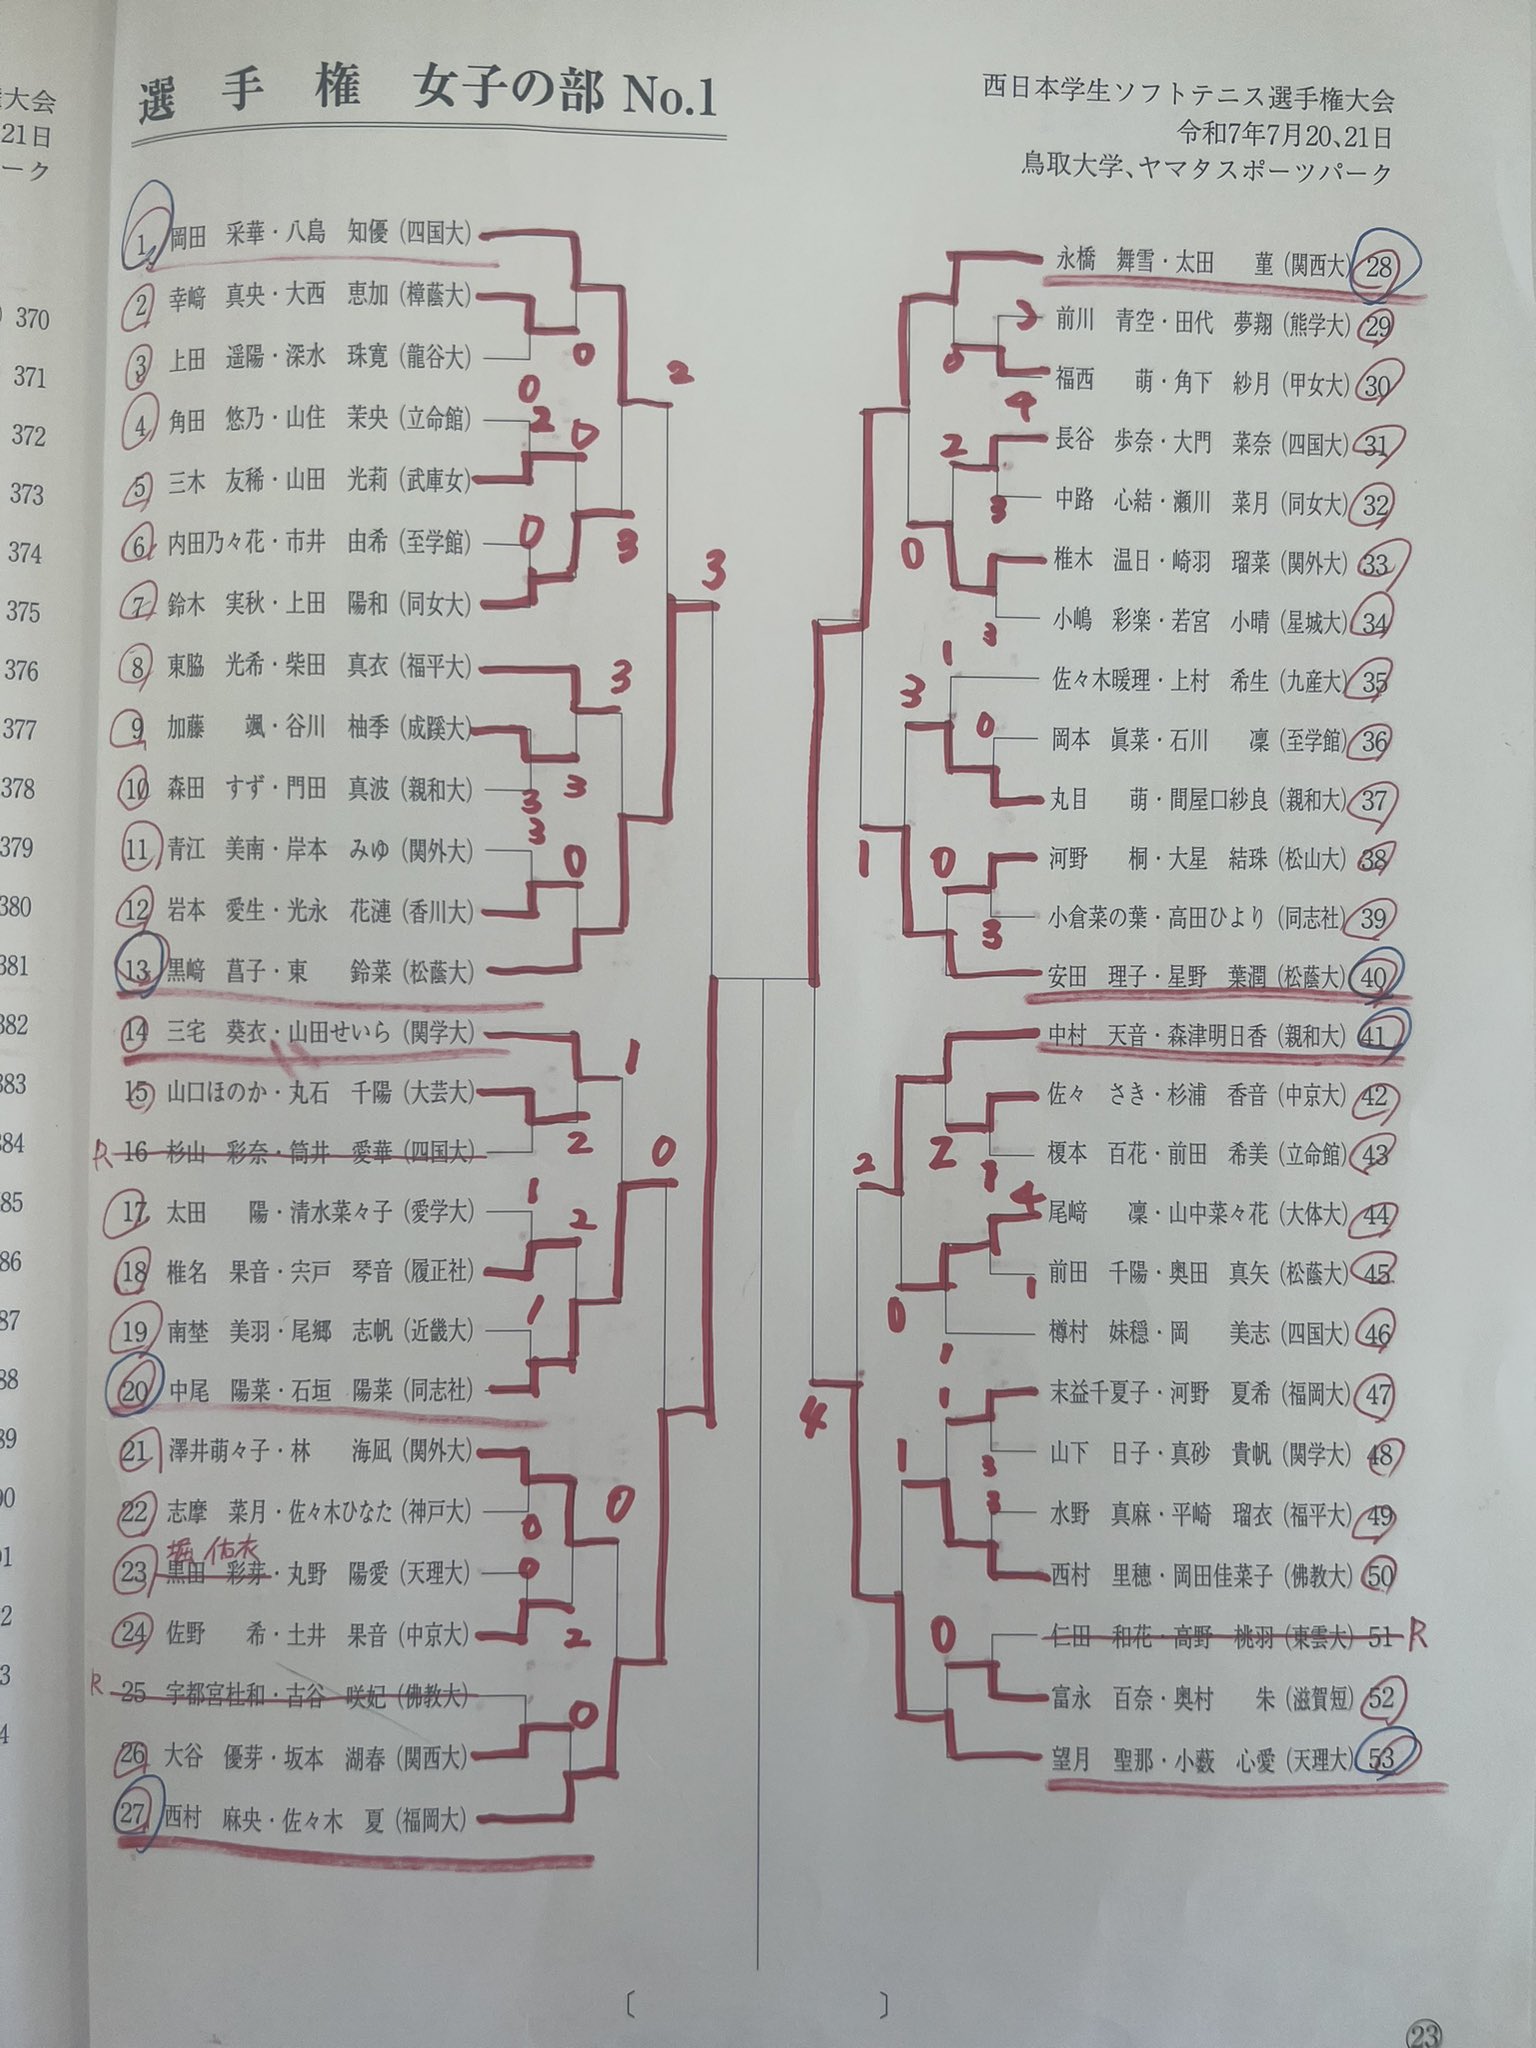 選手権 女子の部 No.1
西日本学生ソフトテニス選手権大会
令和7年7月20、21日
鳥取大学、ヤマタスポーツパーク
大会
21日
ーク
370
371
372
373
374
375
376
377
378
379
380
381
382
383
384
385
86
87
88
89
90
91
2
3
4
1 岡田 采華・八島 知優 (四国大)
2 幸﨑 真央・大西 恵加 (樟蔭大)
0
3 上田 遥陽・深水 珠寛 (龍谷大)
0
2
4 角田 悠乃・山住 茉央 (立命館)
2
0
5 三木 友稀・山田 光莉 (武庫女)
6 内田乃々花・市井 由希 (至学館)
0
3
3
7 鈴木 実秋・上田 陽和 (同女大)
8 東脇 光希・柴田 真衣 (福平大)
3
9 加藤 颯・谷川 柚季 (成蹊大)
10 森田 すず・門田 真波 (親和大)
3
3
3
11 青江 美南・岸本 みゆ (関外大)
0
12 岩本 愛生・光永 花漣 (香川大)
13 黒﨑 菖子・東 鈴菜 (松蔭大)
14 三宅 葵衣・山田せいら (関学大)
1
15 山口ほのか・丸石 千陽 (大芸大)
2
R 16 杉山 彩奈・筒井 愛華 (四国大)
0
1
17 太田 陽・清水菜々子 (愛学大)
2
18 椎名 果音・宍戸 琴音 (履正社)
1
19 南埜 美羽・尾郷 志帆 (近畿大)
20 中尾 陽菜・石垣 陽菜 (同志社)
21 澤井萌々子・林 海凪 (関外大)
0
22 志摩 菜月・佐々木ひなた (神戸大)
0
堀 佑衣
23 黒田 彩芽・丸野 陽愛 (天理大)
0
24 佐野 希・土井 果音 (中京大)
2
R 25 宇都宮杜和・古谷 咲妃 (佛教大)
0
26 大谷 優芽・坂本 湖春 (関西大)
27 西村 麻央・佐々木 夏 (福岡大)
永橋 舞雪・太田 菫 (関西大) 28
3
前川 青空・田代 夢翔 (熊学大) 29
0
福西 萌・角下 紗月 (甲女大) 30
4
2
長谷 歩奈・大門 菜奈 (四国大) 31
3
中路 心結・瀬川 菜月 (同女大) 32
0
椎木 温日・崎羽 瑠菜 (関外大) 33
3
小嶋 彩楽・若宮 小晴 (星城大) 34
1
佐々木暖理・上村 希生 (九産大) 35
3
0
岡本 眞菜・石川 凜 (至学館) 36
丸目 萌・間屋口紗良 (親和大) 37
1
0
河野 桐・大星 結珠 (松山大) 38
3
小倉菜の葉・高田ひより (同志社) 39
安田 理子・星野 葉潤 (松蔭大) 40
中村 天音・森津明日香 (親和大) 41
佐々 さき・杉浦 香音 (中京大) 42
2
2
榎本 百花・前田 希美 (立命館) 43
4
尾﨑 凜・山中菜々花 (大体大) 44
1
前田 千陽・奥田 真矢 (松蔭大) 45
0
樽村 妹穏・岡 美志 (四国大) 46
1
1
末益千夏子・河野 夏希 (福岡大) 47
4
1
3
山下 日子・真砂 貴帆 (関学大) 48
3
水野 真麻・平崎 瑠衣 (福平大) 49
西村 里穂・岡田佳菜子 (佛教大) 50
0
仁田 和花・高野 桃羽 (東雲大) 51 R
富永 百奈・奥村 朱 (滋賀短) 52
望月 聖那・小薮 心愛 (天理大) 53
〔 〕
23